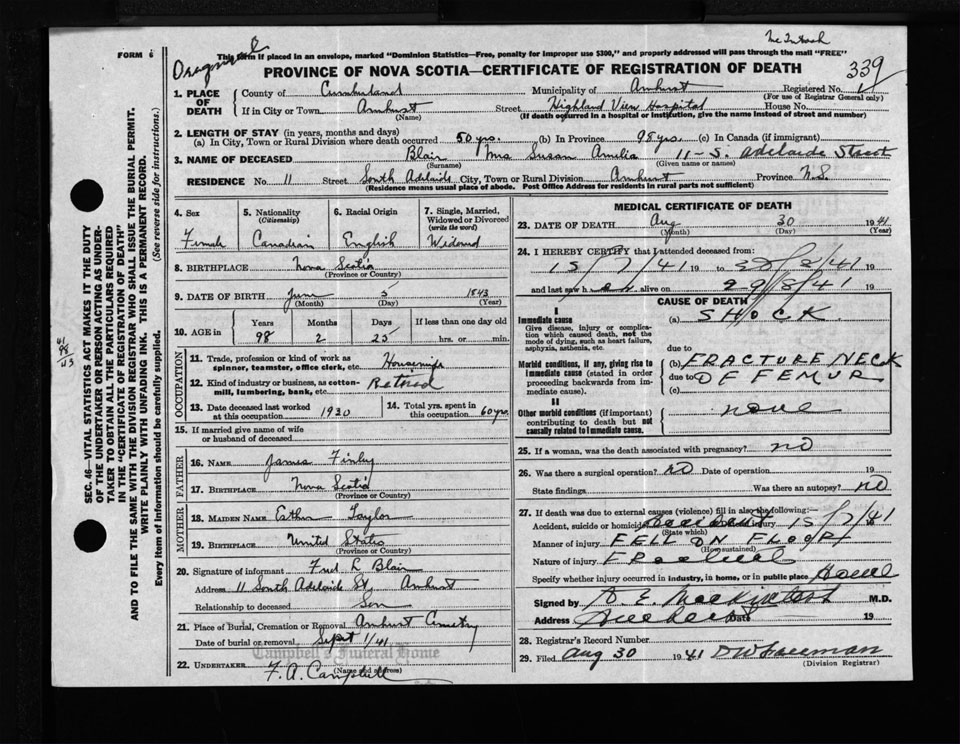 McIntosh
Original
339
FORM 6
This form if placed in an envelope, marked "Dominion Statistics—Free, penalty for improper use $300," and properly addressed will pass through the mail "FREE"
PROVINCE OF NOVA SCOTIA—CERTIFICATE OF REGISTRATION OF DEATH
1. PLACE OF DEATH
County of Cumberland Municipality of Amherst Registered No.
(For use of Registrar General only)
If in City or Town Amherst Street Highland View Hospital House No.
(Name) (If death occurred in a hospital or institution, give the name instead of street and number)
2. LENGTH OF STAY (in years, months and days)
(a) In City, Town or Rural Division where death occurred 50 yrs. (b) In Province 98 yrs. (c) In Canada (if immigrant)
3. NAME OF DECEASED Blair Mrs Susan Amelia 11 - S. Adelaide Street
(Surname) (Given name or names)
RESIDENCE No. 11 Street South Adelaide City, Town or Rural Division Amherst Province N.S.
(Residence means usual place of abode. Post Office Address for residents in rural parts not sufficient)
4. Sex
Female
5. Nationality
(Citizenship)
Canadian
6. Racial Origin
English
7. Single, Married, Widowed or Divorced
(write the word)
Widowed
8. BIRTHPLACE Nova Scotia
(Province or Country)
9. DATE OF BIRTH June 5 1843
(Month) (Day) (Year)
10. AGE in
Years Months Days If less than one day old
98 2 25 hrs. or min.
OCCUPATION
11. Trade, profession or kind of work as
spinner, teamster, office clerk, etc. Housewife
12. Kind of industry or business, as cotton-
mill, lumbering, bank, etc. Retired
13. Date deceased last worked
at this occupation 1920
14. Total yrs. spent in
this occupation 60 yrs.
15. If married give name of wife
or husband of deceased
FATHER
16. NAME James Finley
17. BIRTHPLACE Nova Scotia
(Province or Country)
MOTHER
18. MAIDEN NAME Esther Taylor
19. BIRTHPLACE United States
(Province or Country)
20. Signature of informant Fred R Blair
Address 11 South Adelaide St, Amherst
Relationship to deceased Son
21. Place of Burial, Cremation or Removal Amherst Cemetry
Date of burial or removal Sept 1/41
Campbell's Funeral Home
22. UNDERTAKER F. A. Campbell
(Name and address)
MEDICAL CERTIFICATE OF DEATH
23. DATE OF DEATH Aug 30 1941
(Month) (Day) (Year)
24. I HEREBY CERTIFY that I attended deceased from:
15/7/41 19 to 19
and last saw her alive on 29/8/41 19
CAUSE OF DEATH
I
Immediate cause
Give disease, injury or complica-
tion which caused death, not the
mode of dying, such as heart failure,
asphyxia, asthenia, etc.
(a) SHOCK
due to
Morbid conditions, if any, giving rise to
immediate cause (stated in order
proceeding backwards from im-
mediate cause).
(b) FRACTURE NECK
due to OF FEMUR
(c)
II
Other morbid conditions (if important)
contributing to death but not
causally related to immediate cause.
none
25. If a woman, was the death associated with pregnancy? NO
26. Was there a surgical operation? NO Date of operation 19
State findings Was there an autopsy? NO
27. If death was due to external causes (violence) fill in also the following:
Accident, suicide or homicide accident injury 15/7/41
(State which)
Manner of injury FELL ON FLOOR
(How sustained)
Nature of injury Fracture
Specify whether injury occurred in industry, in home, or in public place Home
Signed by D. E. MacKintosh M.D.
Address Amherst Date 19
28. Registrar's Record Number
29. Filed Aug 30 1941 DW Freeman
(Division Registrar)
SEC. 46—VITAL STATISTICS ACT MAKES IT THE DUTY
OF THE UNDERTAKER OR PERSON ACTING AS UNDER-
TAKER TO OBTAIN ALL THE PARTICULARS REQUIRED
IN THE "CERTIFICATE OF REGISTRATION OF DEATH"
AND TO FILE THE SAME WITH THE DIVISION REGISTRAR WHO SHALL ISSUE THE BURIAL PERMIT.
WRITE PLAINLY WITH UNFADING INK. THIS IS A PERMANENT RECORD.
Every item of information should be carefully supplied. (See reverse side for instructions.)
41
98
43